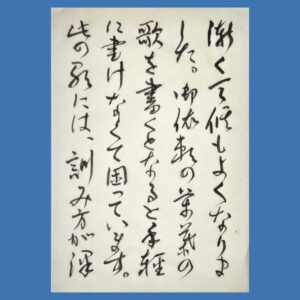 漸くて候もよくなりま
した。御依頼の万葉の
歌を書くとなると手軽
に書けなくて困っています。
此の歌には、訓み方が深